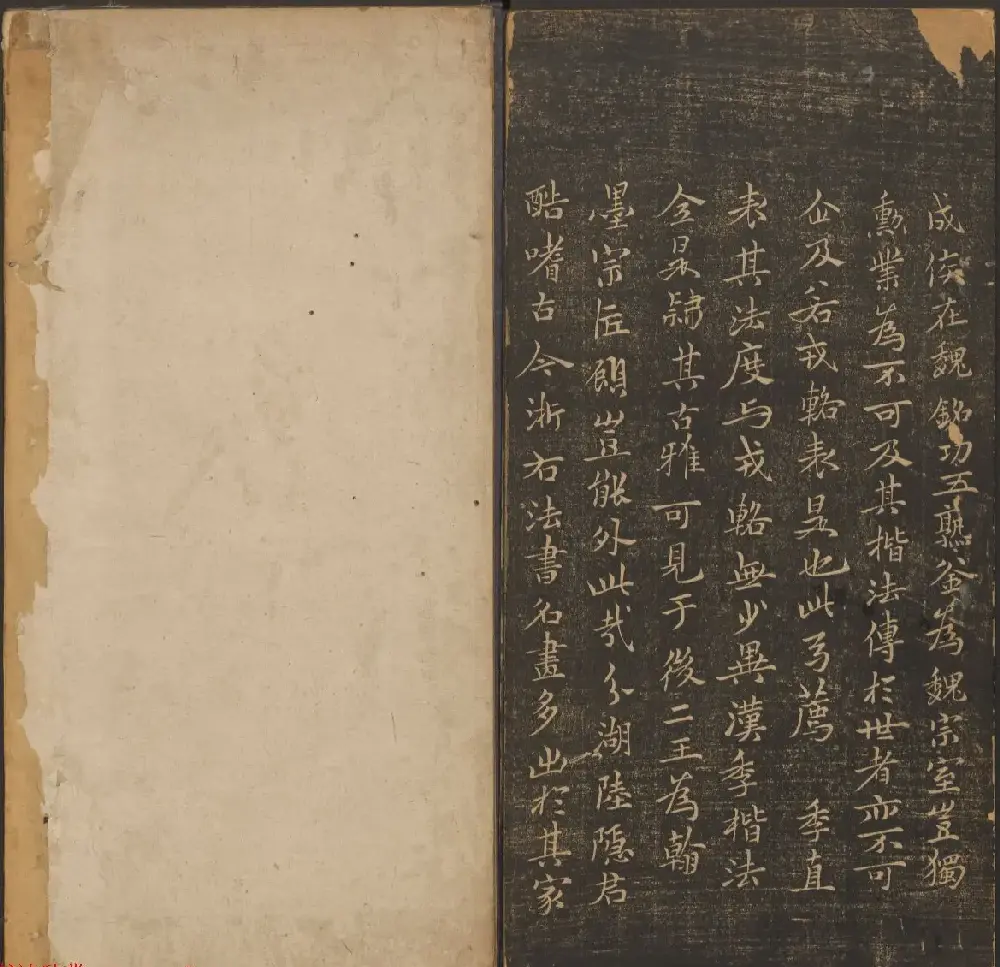 成侯在魏銘功五熟釜為魏宗室豈獨
勳業為不可及其楷法傳於世者亦不可
企及若戎輅表是也此乃薦季直
表其法度与戎輅無少異漢季楷法
全是隸其古雅可見于後二王為翰
墨宗匠顧豈能外此哉分湖陸隱君
酷嗜古今浙右法書名畫多出於其家